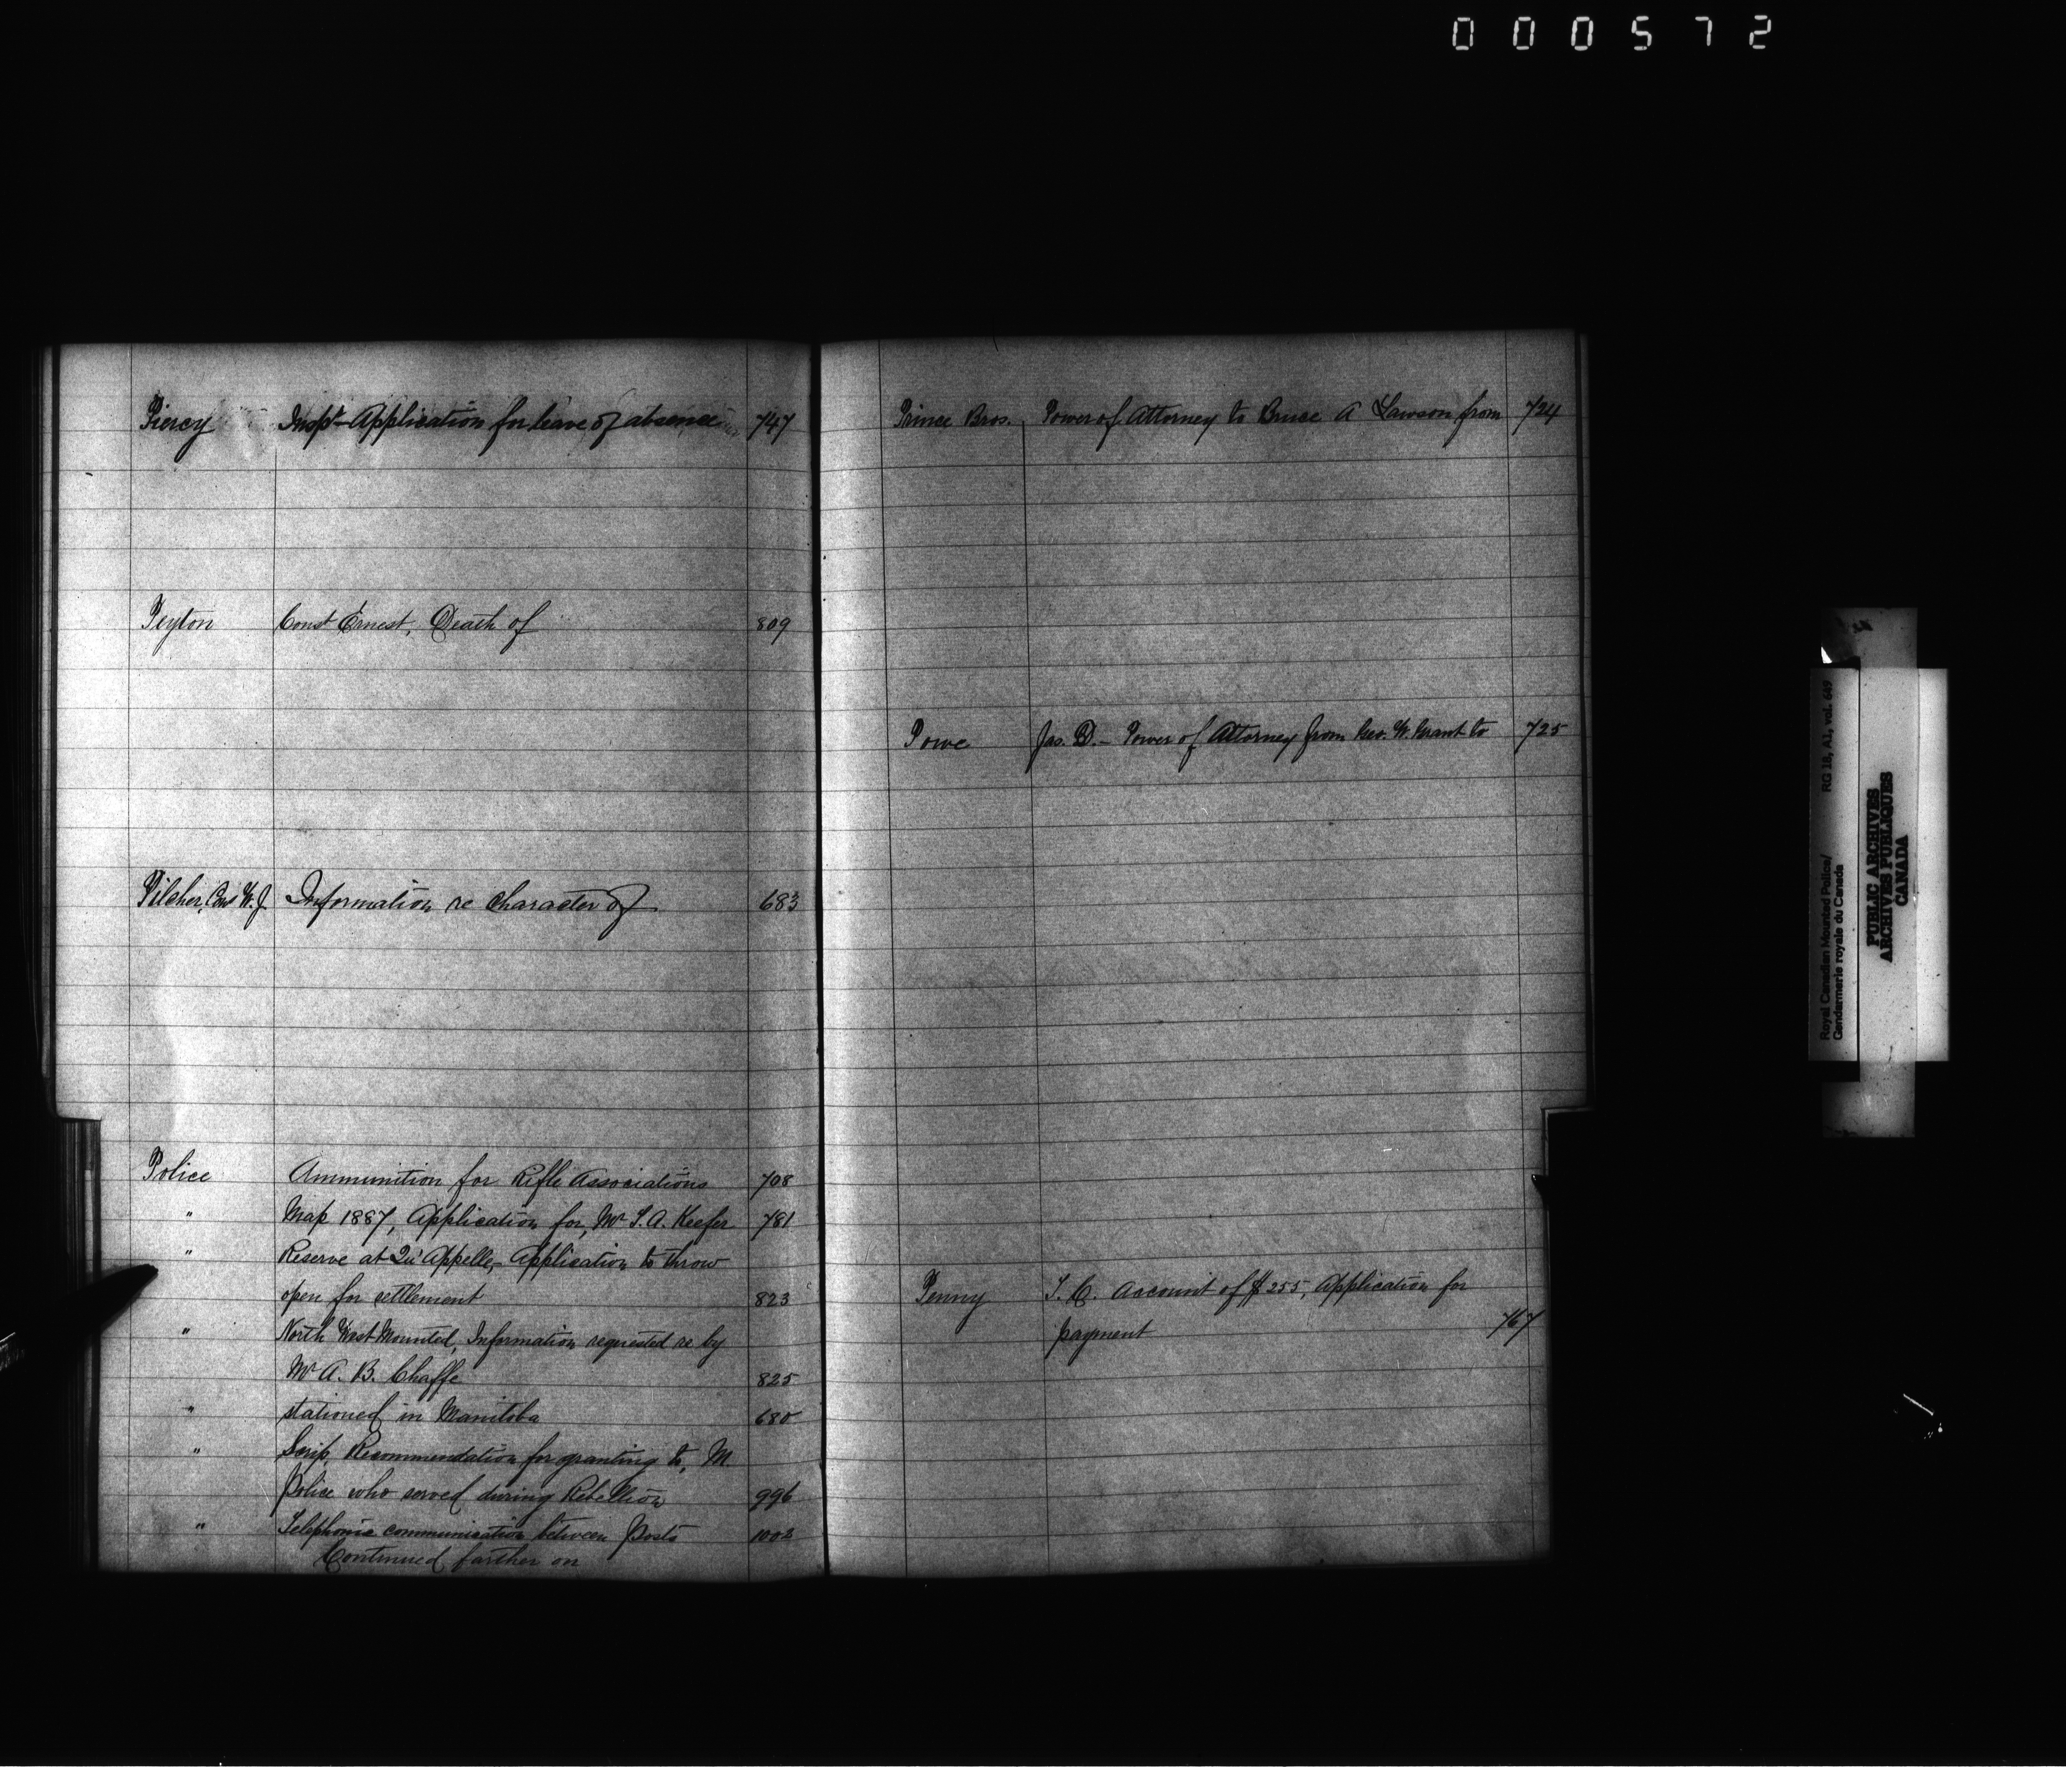 000572
Piercy Inspr - Application for leave of absence 747
Peyton Const Ernest, Death of 809
Pilcher, Cons W. J. Information re character of 683
Police Ammunition for Rifle Associations 708
" Map 1887, Application for, Mr T. A. Keefer 781
" Reserve at Qu'Appelle, - Application to throw
open for settlement 823
" North West Mounted, Information requested re by
Mr A. B. Chaffe 825
" stationed in Manitoba 680
" Scrip, Recommendation for granting to, M.
Police who served during Rebellion 996
" Telephonic communication between posts 1002
Continued farther on
Prince Bros. Power of Attorney to Bruce A Lawson from 724
Powe Jas. D. - Power of Attorney from Geo. W. Grant to 725
Penny T. C. Account of $255, Application for
payment 767
Royal Canadian Mounted Police/ RG 18, A1, vol. 649
Gendarmerie royale du Canada
PUBLIC ARCHIVES
ARCHIVES PUBLIQUES
CANADA